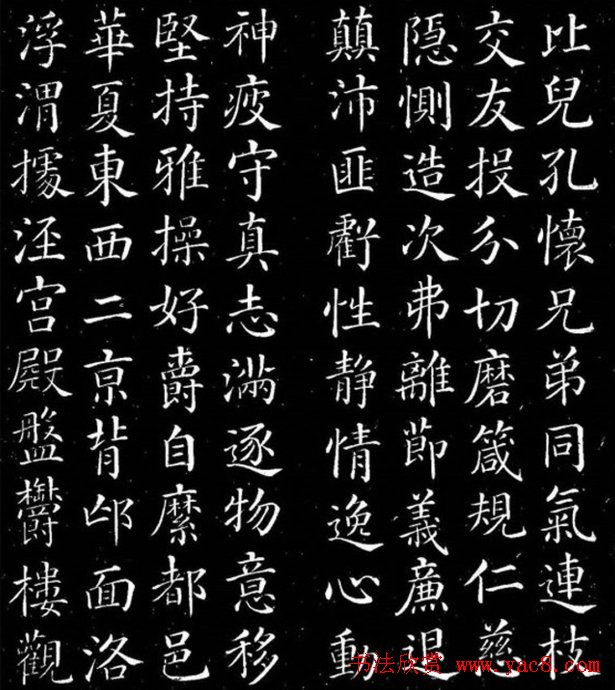 比兒孔懷兄弟同氣連枝
交友投分切磨箴規仁慈
隱惻造次弗離節義廉退
顛沛匪虧性靜情逸心動
神疲守真志滿逐物意移
堅持雅操好爵自縻都邑
華夏東西二京背邙面洛
浮渭據涇宮殿盤鬱樓觀
书法欣赏 www.yac8.com